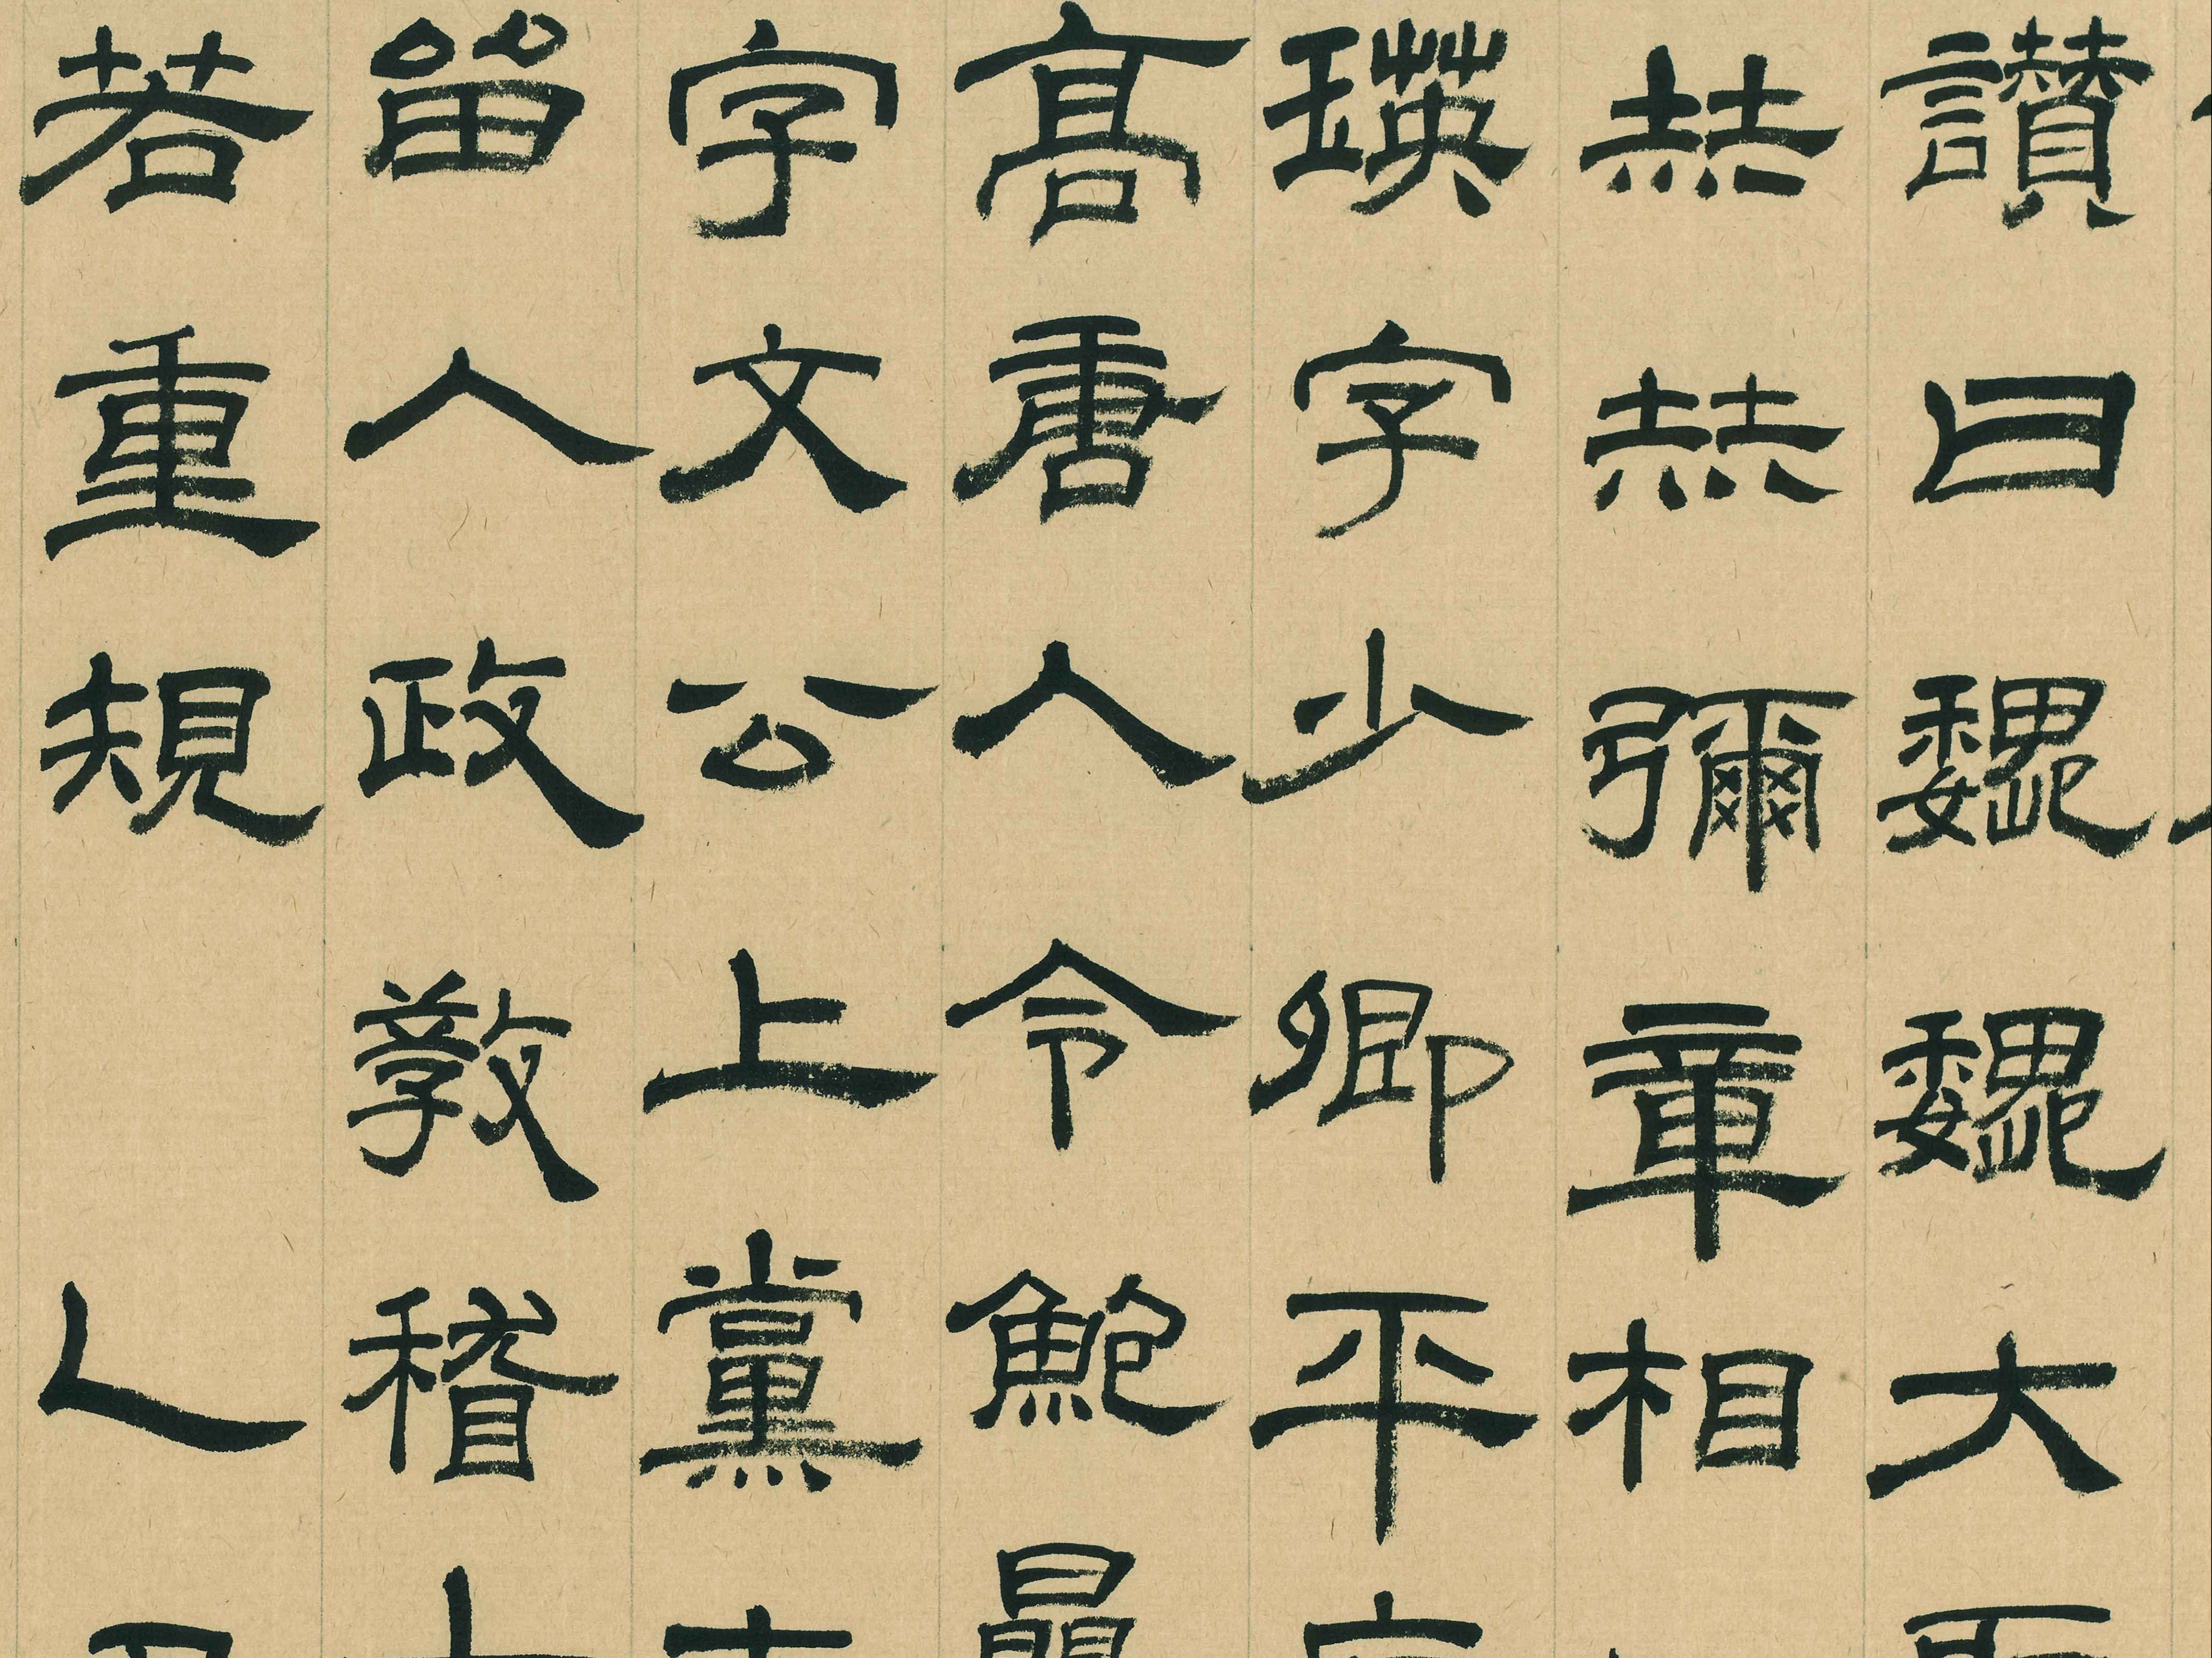 讚曰巍巍大
赫赫彌章相
瑛字少卿平
高唐人令鮑
字文公上黨
留人政教稽
若重規 乙